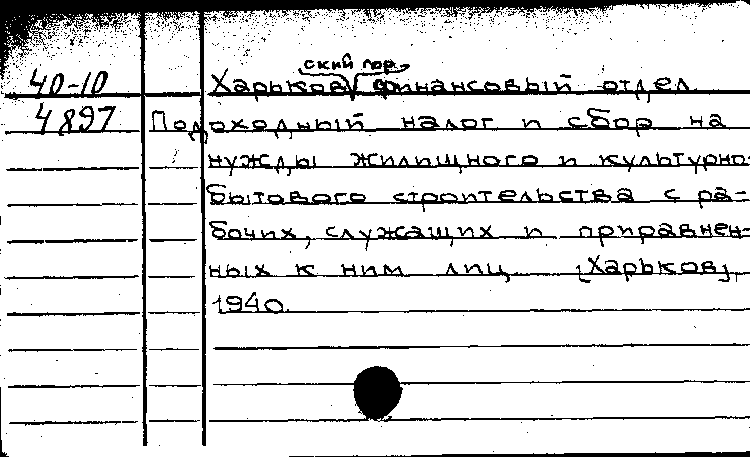 ский гор.
40-10 Харьков финансовый отдел
4897 Подоходный налог и сбор на
нужды жилищного и культурно-
бытового строительства с ра-
бочих, служащих и приравнен-
ных к ним лиц. [Харьков],
1940.